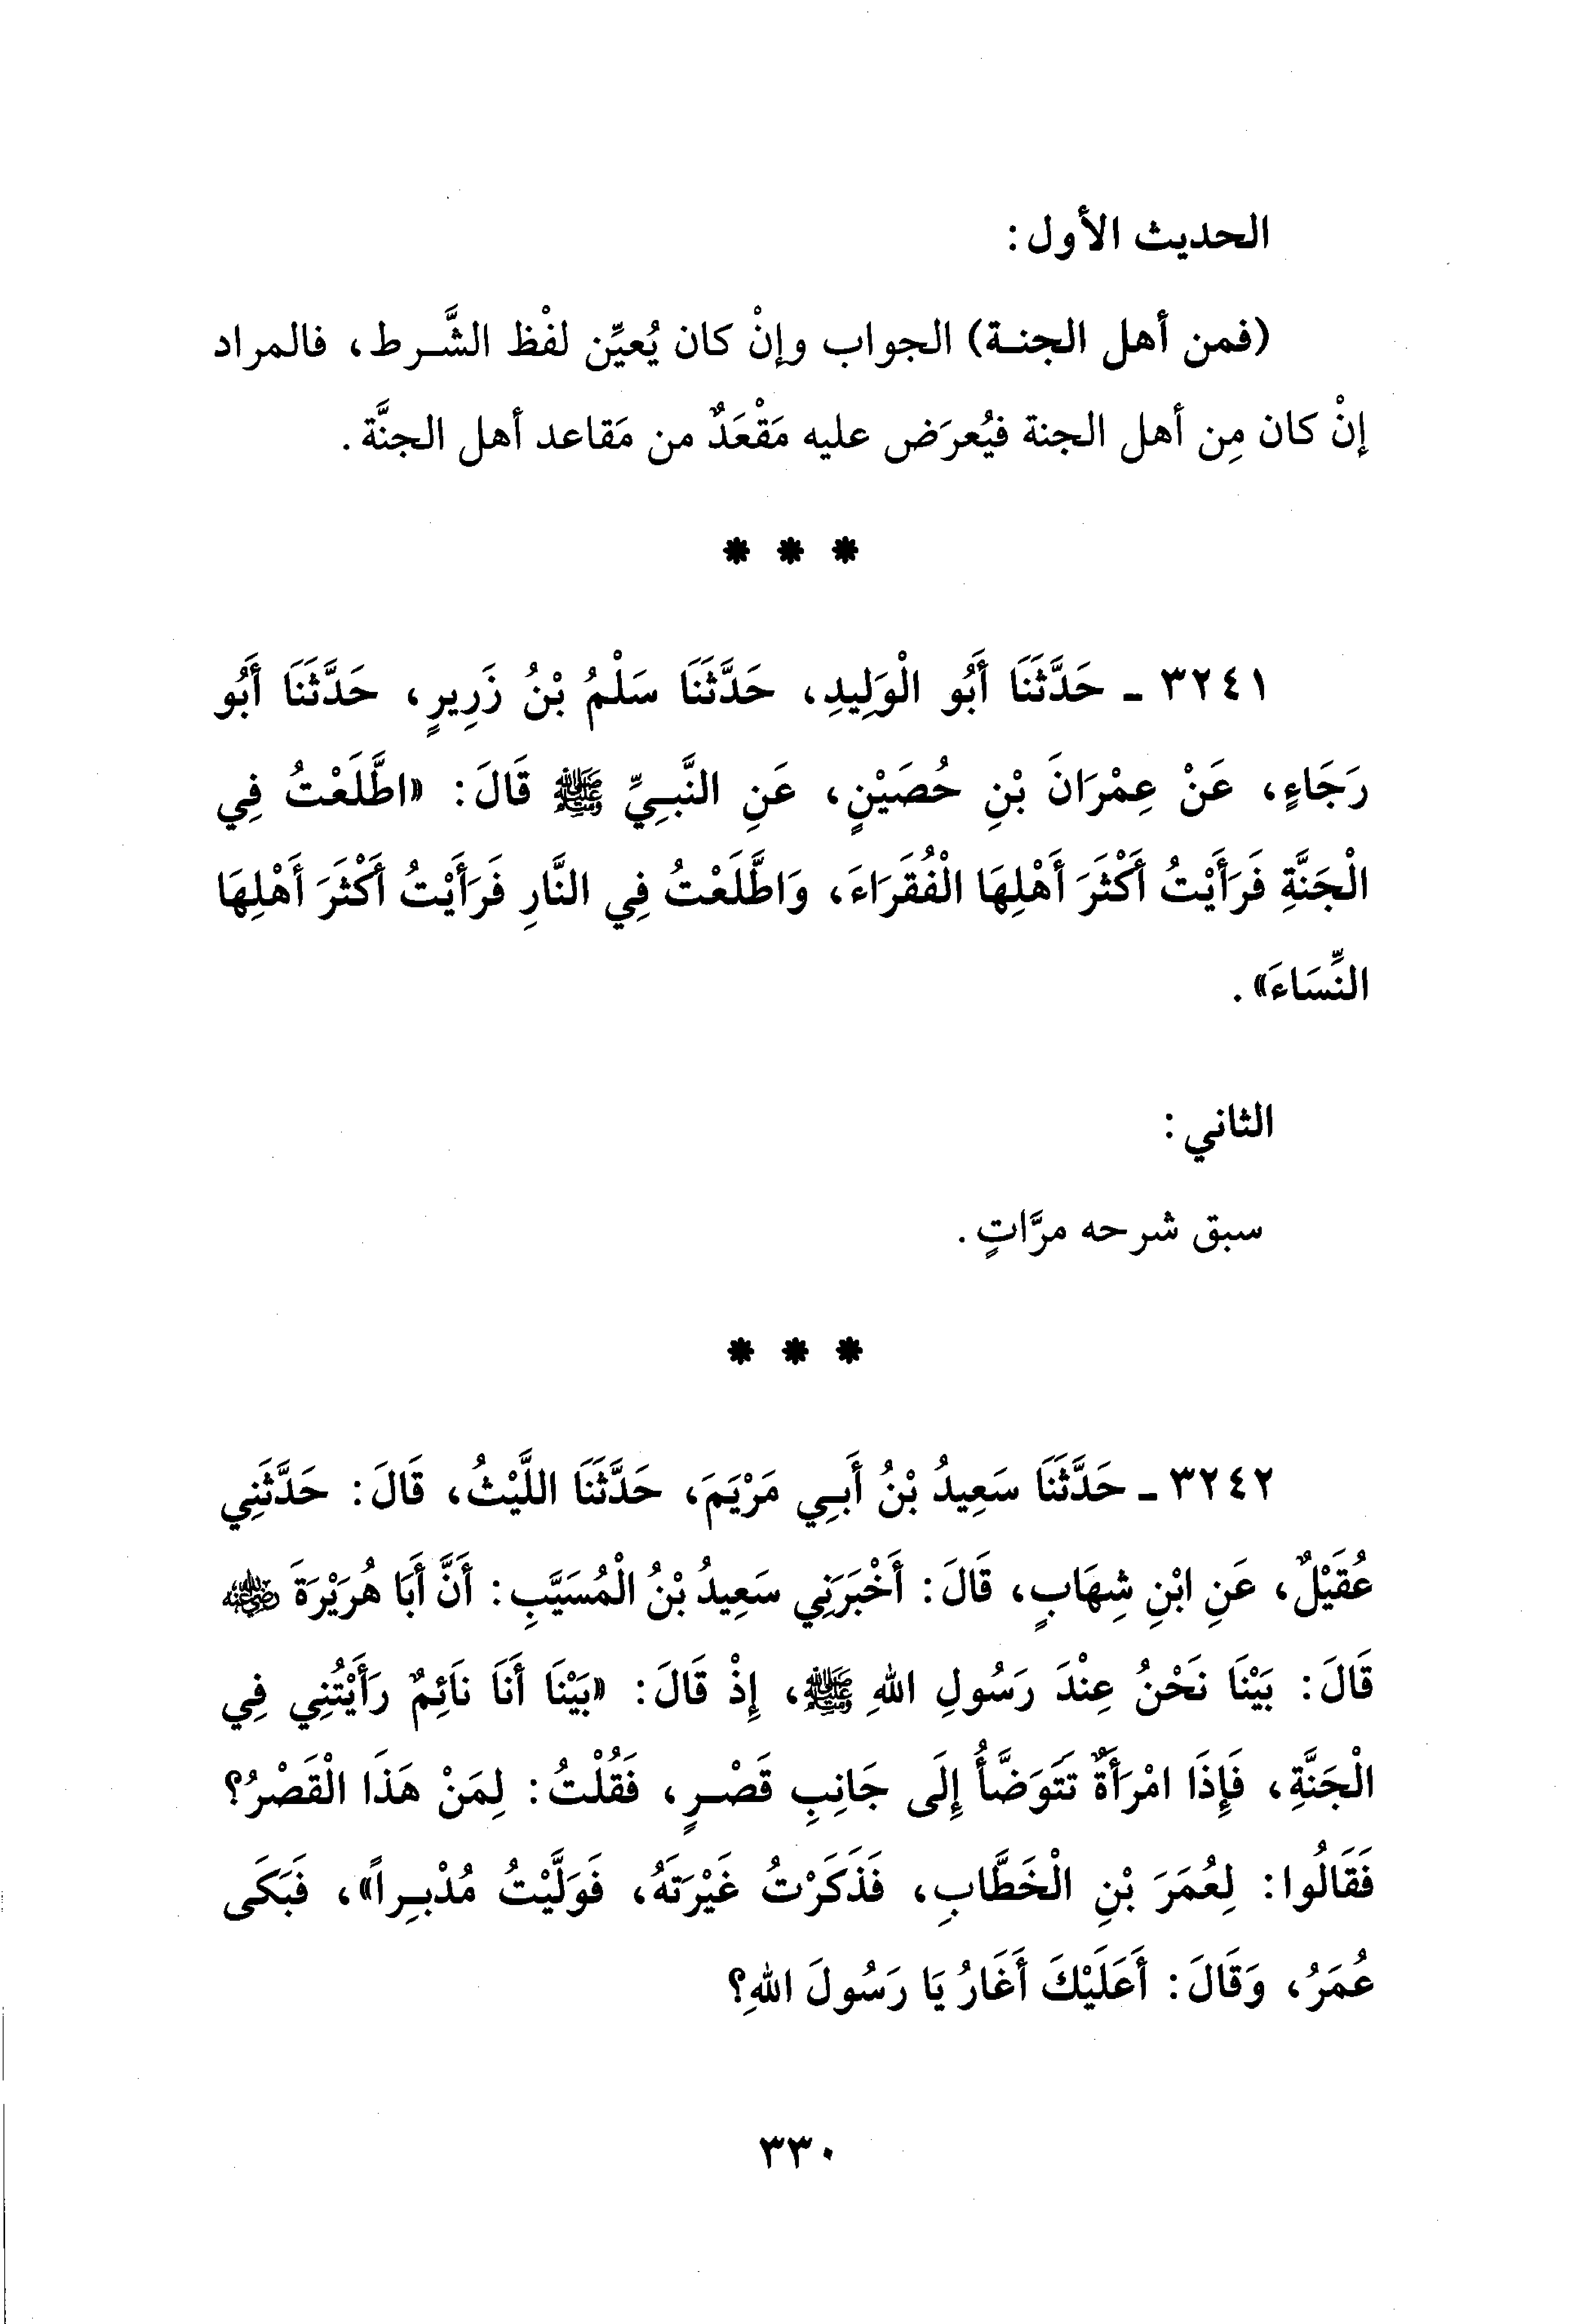 الحديث الأول:
(فمن أهل الجنـة) الجواب وإنْ كان يُعيِّن لفْظ الشَّـرط، فالمراد
إنْ كان مِن أهل الجنة فيُعرَض عليه مَقْعَدٌ من مَقاعد أهل الجنَّة.
* * *
٣٢٤١ - حَدَّثَنَا أَبُو الْوَلِيدِ، حَدَّثَنَا سَلْمُ بْنُ زَرِيرٍ، حَدَّثَنَا أَبُو
رَجَاءٍ، عَنْ عِمْرَانَ بْنِ حُصَيْنٍ، عَنِ النَّبـِيِّ ﷺ قَالَ: «اطَّلَعْتُ فِي
الْجَنَّةِ فَرَأَيْتُ أَكْثَرَ أَهْلِهَا الْفُقَرَاءَ، وَاطَّلَعْتُ فِي النَّارِ فَرَأَيْتُ أَكْثَرَ أَهْلِهَا
النِّسَاءَ».
الثاني:
سبق شرحه مرَّاتٍ.
* * *
٣٢٤٢ - حَدَّثَنَا سَعِيدُ بْنُ أَبـِي مَرْيَمَ، حَدَّثَنَا اللَّيْثُ، قَالَ: حَدَّثَنِي
عُقَيْلٌ، عَنِ ابْنِ شِهَابٍ، قَالَ: أَخْبَرَنِي سَعِيدُ بْنُ الْمُسَيَّبِ: أَنَّ أَبَا هُرَيْرَةَ رضي الله عنه
قَالَ: بَيْنَا نَحْنُ عِنْدَ رَسُولِ اللهِ ﷺ، إِذْ قَالَ: «بَيْنَا أَنَا نَائِمٌ رَأَيْتُنِي فِي
الْجَنَّةِ، فَإِذَا امْرَأَةٌ تَتَوَضَّأُ إِلَى جَانِبِ قَصْـرٍ، فَقُلْتُ: لِمَنْ هَذَا الْقَصْرُ؟
فَقَالُوا: لِعُمَرَ بْنِ الْخَطَّابِ، فَذَكَرْتُ غَيْرَتَهُ، فَوَلَّيْتُ مُدْبـِراً»، فَبَكَى
عُمَرُ، وَقَالَ: أَعَلَيْكَ أَغَارُ يَا رَسُولَ اللهِ؟
٣٣٠